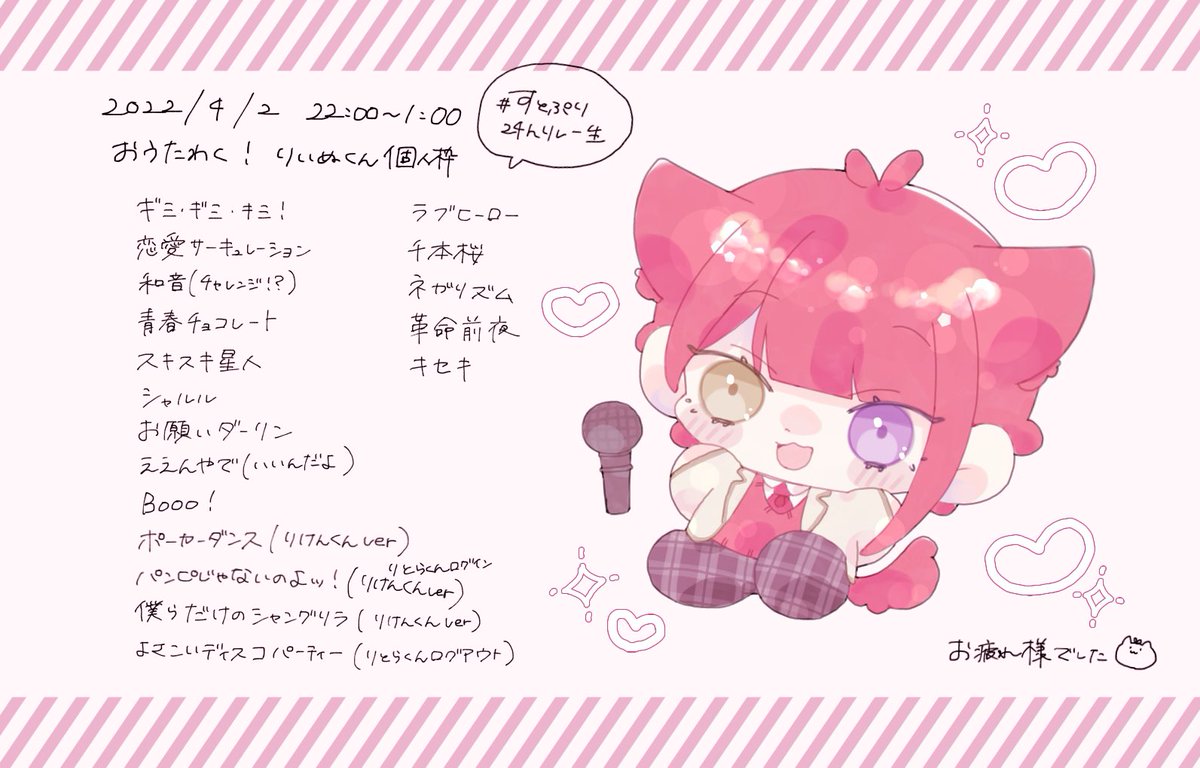 2022/4/2 22:00~1:00
#すとぷり
24hリレー生
おうたわく! りいぬくん個人枠
ギミ・ギミ・キミ!
恋愛サーキュレーション
和音(チャレンジ!?)
青春チョコレート
スキスキ星人
シャルル
お願いダーリン
ええんやで(いいんだよ)
Booo!
ポーカーダンス(りけんくんver)
パンピじゃないのよッ!(りとらくんログイン
りけんくんver)
僕らだけのシャングリラ(りけんくんver)
よさこいディスコパーティー(りとらくんログアウト)
ラブヒーロー
千本桜
ネガリズム
革命前夜
キセキ
お疲れ様でした